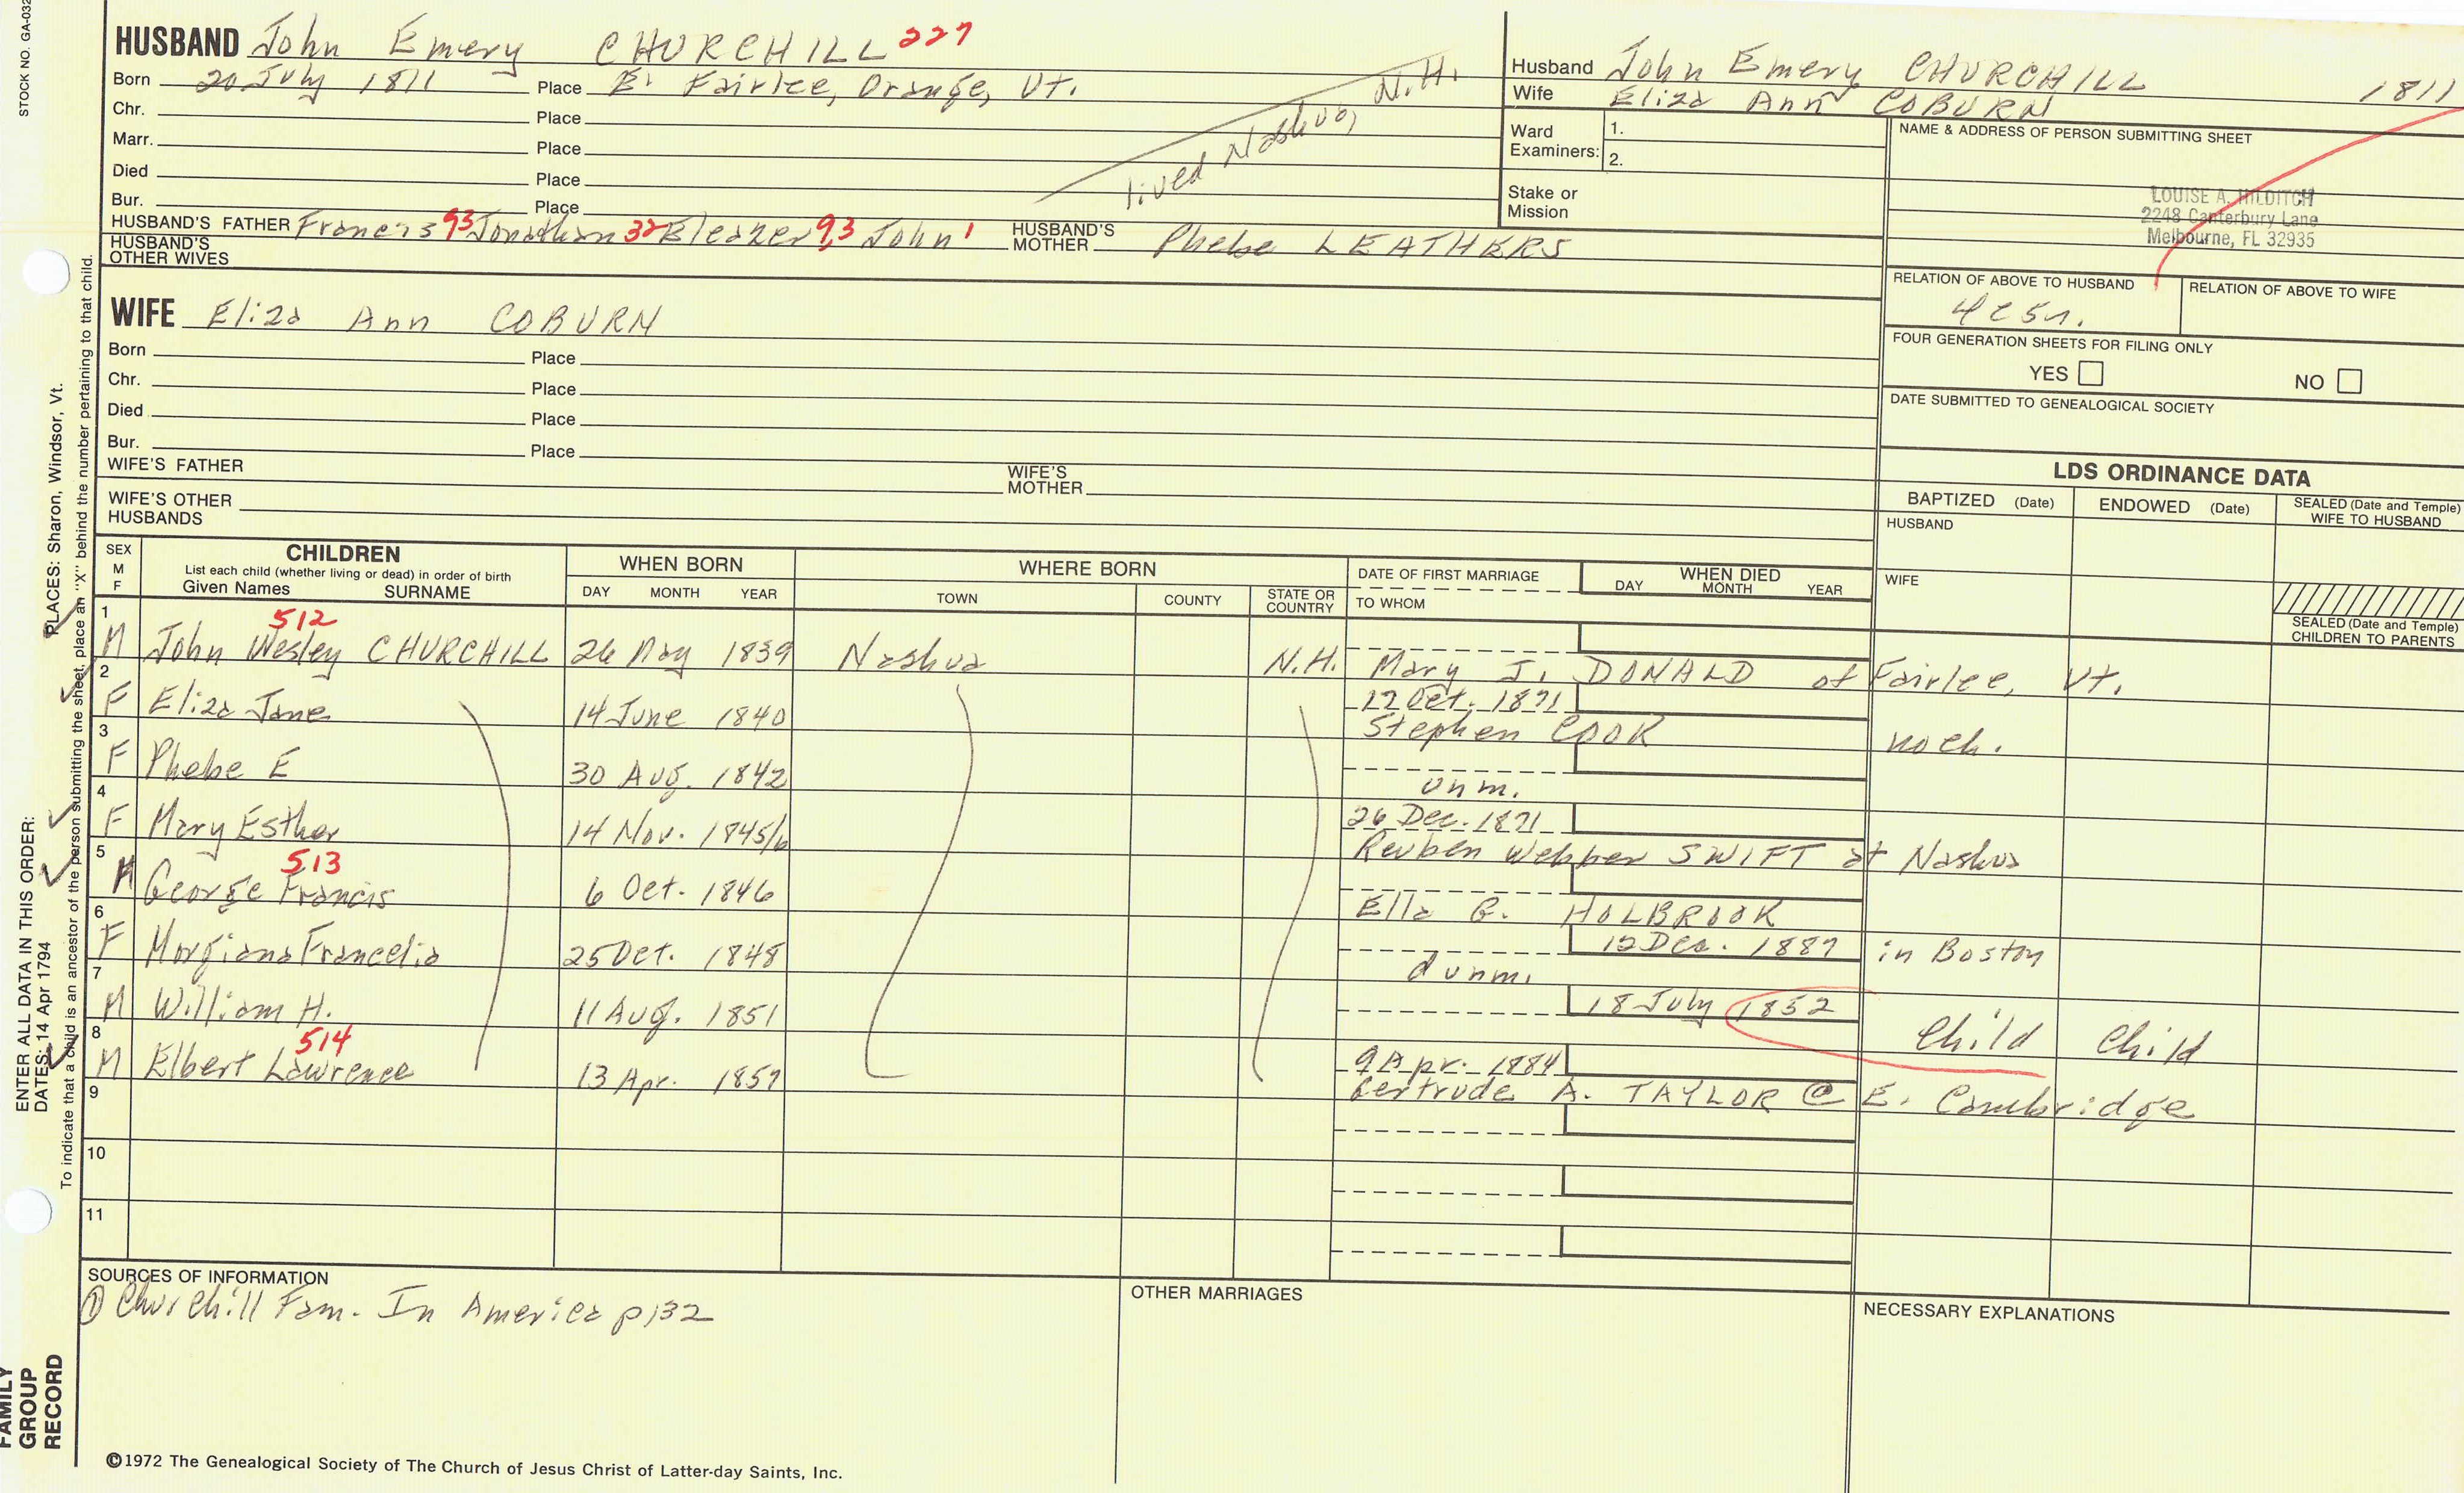 STOCK NO. GA-032
HUSBAND John Emery CHURCHILL 227
Born 20 July 1811 Place E. Fairlee, Orange, Vt.
Chr. Place
Marr. Place
Died Place
Bur. Place
lived Nashua, N.H.
HUSBAND'S FATHER Francis 93 Jonathan 32 Eleazer 9,3 John 1 HUSBAND'S MOTHER Phebe LEATHERS
HUSBAND'S OTHER WIVES
WIFE Eliza Ann COBURN
Born Place
Chr. Place
Died Place
Bur. Place
WIFE'S FATHER WIFE'S MOTHER
WIFE'S OTHER HUSBANDS
Husband John Emery CHURCHILL 1811
Wife Eliza Ann COBURN
Ward Examiners: 1.
2.
Stake or Mission
NAME & ADDRESS OF PERSON SUBMITTING SHEET
LOUISE A. HILDITCH
2248 Canterbury Lane
Melbourne, FL 32935
RELATION OF ABOVE TO HUSBAND RELATION OF ABOVE TO WIFE
4c5r.
FOUR GENERATION SHEETS FOR FILING ONLY
YES NO
DATE SUBMITTED TO GENEALOGICAL SOCIETY
LDS ORDINANCE DATA
BAPTIZED (Date) ENDOWED (Date) SEALED (Date and Temple) WIFE TO HUSBAND
HUSBAND
WIFE
SEALED (Date and Temple) CHILDREN TO PARENTS
SEX M F CHILDREN WHEN BORN WHERE BORN DATE OF FIRST MARRIAGE WHEN DIED
List each child (whether living or dead) in order of birth
Given Names SURNAME DAY MONTH YEAR TOWN COUNTY STATE OR COUNTRY TO WHOM DAY MONTH YEAR
1 M John Wesley CHURCHILL 512 26 May 1839 Nashua N.H. Mary J. DONALD of Fairlee, Vt.
2 F Eliza Jane 14 June 1840 12 Oct. 1871
Stephen COOK no ch.
3 F Phebe E 30 Aug. 1842 unm.
4 F Mary Esther 14 Nov. 1845/6 26 Dec. 1871
Reuben Webber SWIFT at Nashua
5 M George Francis 513 6 Oct. 1846 Ella G. HOLBROOK
6 F Morgiana Francelia 25 Oct. 1848 12 Dec. 1887 in Boston
d unm.
7 M William H. 11 Aug. 1851 18 July 1852 Child Child
8 M Elbert Lawrence 514 13 Apr. 1857 9 Apr. 1884
Gertrude A. TAYLOR @ E. Cambridge
9
10
11
SOURCES OF INFORMATION OTHER MARRIAGES NECESSARY EXPLANATIONS
① Churchill Fam. In America p132
©1972 The Genealogical Society of The Church of Jesus Christ of Latter-day Saints, Inc.
ENTER ALL DATA IN THIS ORDER:
DATES: 14 Apr 1794 PLACES: Sharon, Windsor, Vt.
To indicate that a child is an ancestor of the person submitting the sheet, place an "X" behind the number pertaining to that child.
FAMILY
GROUP
RECORD